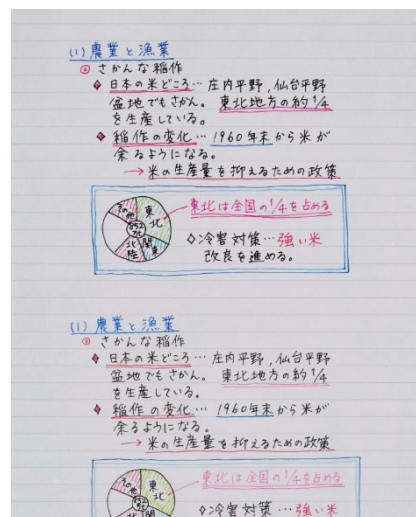 (1) 農業と漁業
さかんな稲作
日本の米どころ… 庄内平野, 仙台平野
盆地でもさかん。 東北地方の約1/4
を生産している。
稲作の変化… 1960年末から米が
余るようになる。
→ 米の生産量を抑えるための政策
東北は全国の1/4を占める
その他
東北
関東
北陸
◇冷害対策…強い米
改良を進める。
(1) 農業と漁業
さかんな稲作
日本の米どころ… 庄内平野, 仙台平野
盆地でもさかん。 東北地方の約1/4
を生産している。
稲作の変化… 1960年末から米が
余るようになる。
→ 米の生産量を抑えるための政策
東北は全国の1/4を占める
その他
東北
◇冷害対策…強い米